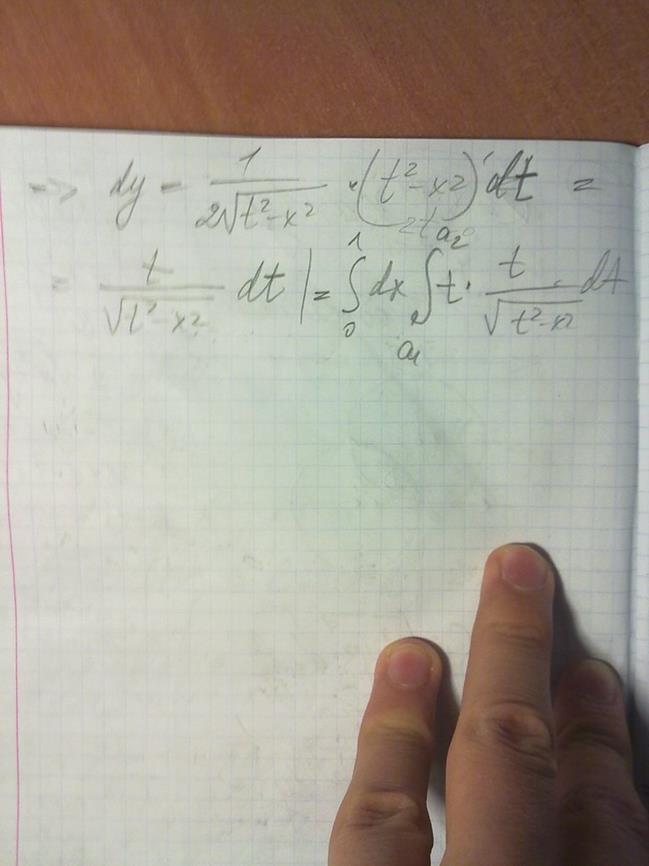 => dy = 1/(2√(t²-x²)) · (t²-x²)' dt =
2t
= t/√(t²-x²) dt | = ∫₀¹ dx ∫_{a₁}^{a₂} t · t/√(t²-x²) dt